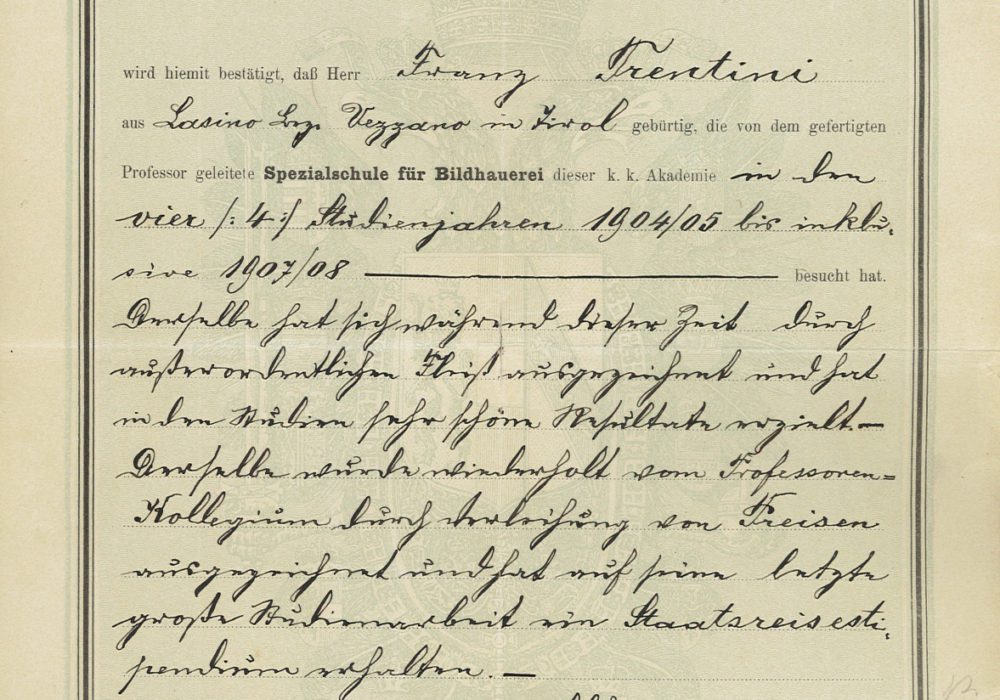 wird hiemit bestätigt, daß Herr Franz Trentini
aus Lasino Bez. Vezzano in Tirol gebürtig, die von dem gefertigten
Professor geleitete Spezialschule für Bildhauerei dieser k. k. Akademie in den
vier /: 4 :/ Studienjahren 1904/05 bis inklu-
sive 1907/08 besucht hat.
Derselbe hat sich während dieser Zeit durch
außerordentlichen Fleiß ausgezeichnet und hat
in den Studien sehr schöne Resultate erzielt.—
Derselbe wurde wiederholt vom Professoren=
Kollegium durch Verleihung von Preisen
ausgezeichnet und hat auf seine letzte
große Studienarbeit ein Staatsreisesti-
pendium erhalten.—